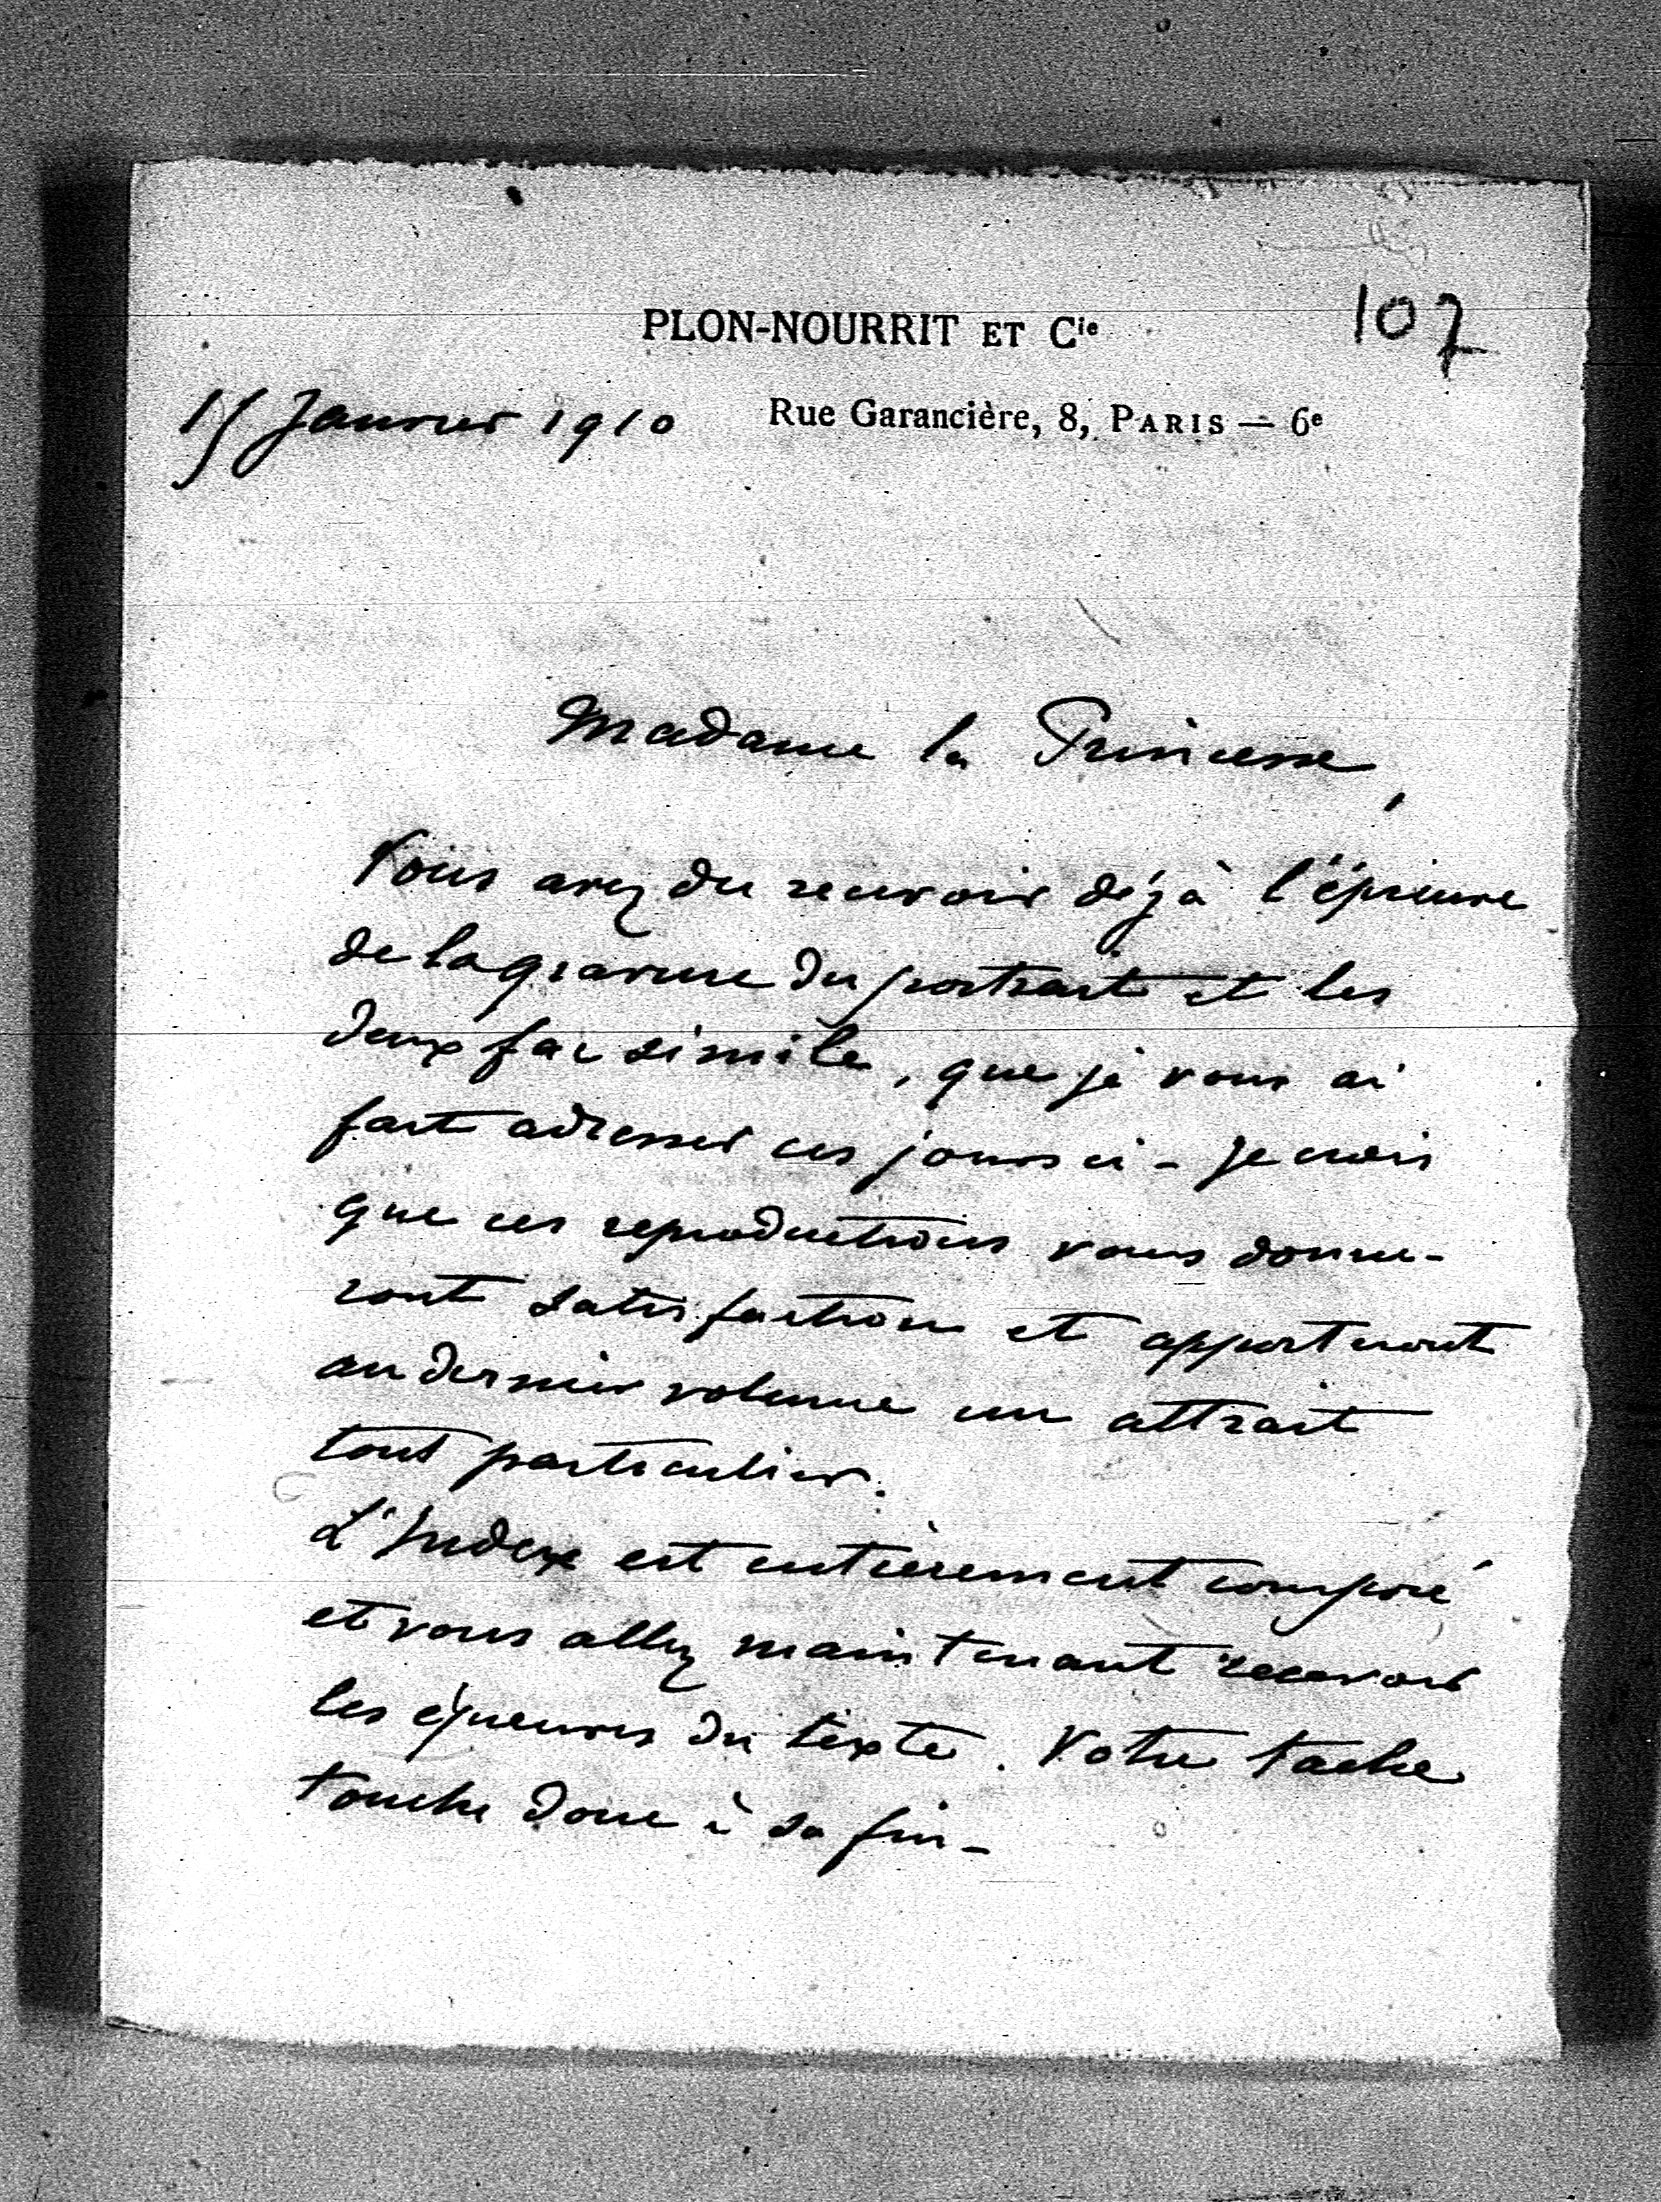 PLON-NOURRIT ET Cie
107
15 Janvier 1910
Rue Garancière, 8, PARIS — 6e
Madame la Princesse,
Vous avez du recevoir déjà l'épreuve
de la gravure du portrait et les
deux fac simile, que je vous ai
fait adresser ces jours ci - Je crois
que ces reproductions vous donne-
ront satisfaction et apporteront
au dernier volume un attrait
tout particulier.
L'Index est entièrement composé
et vous allez maintenant recevoir
les épreuves du texte. Votre tache
touche donc à sa fin -